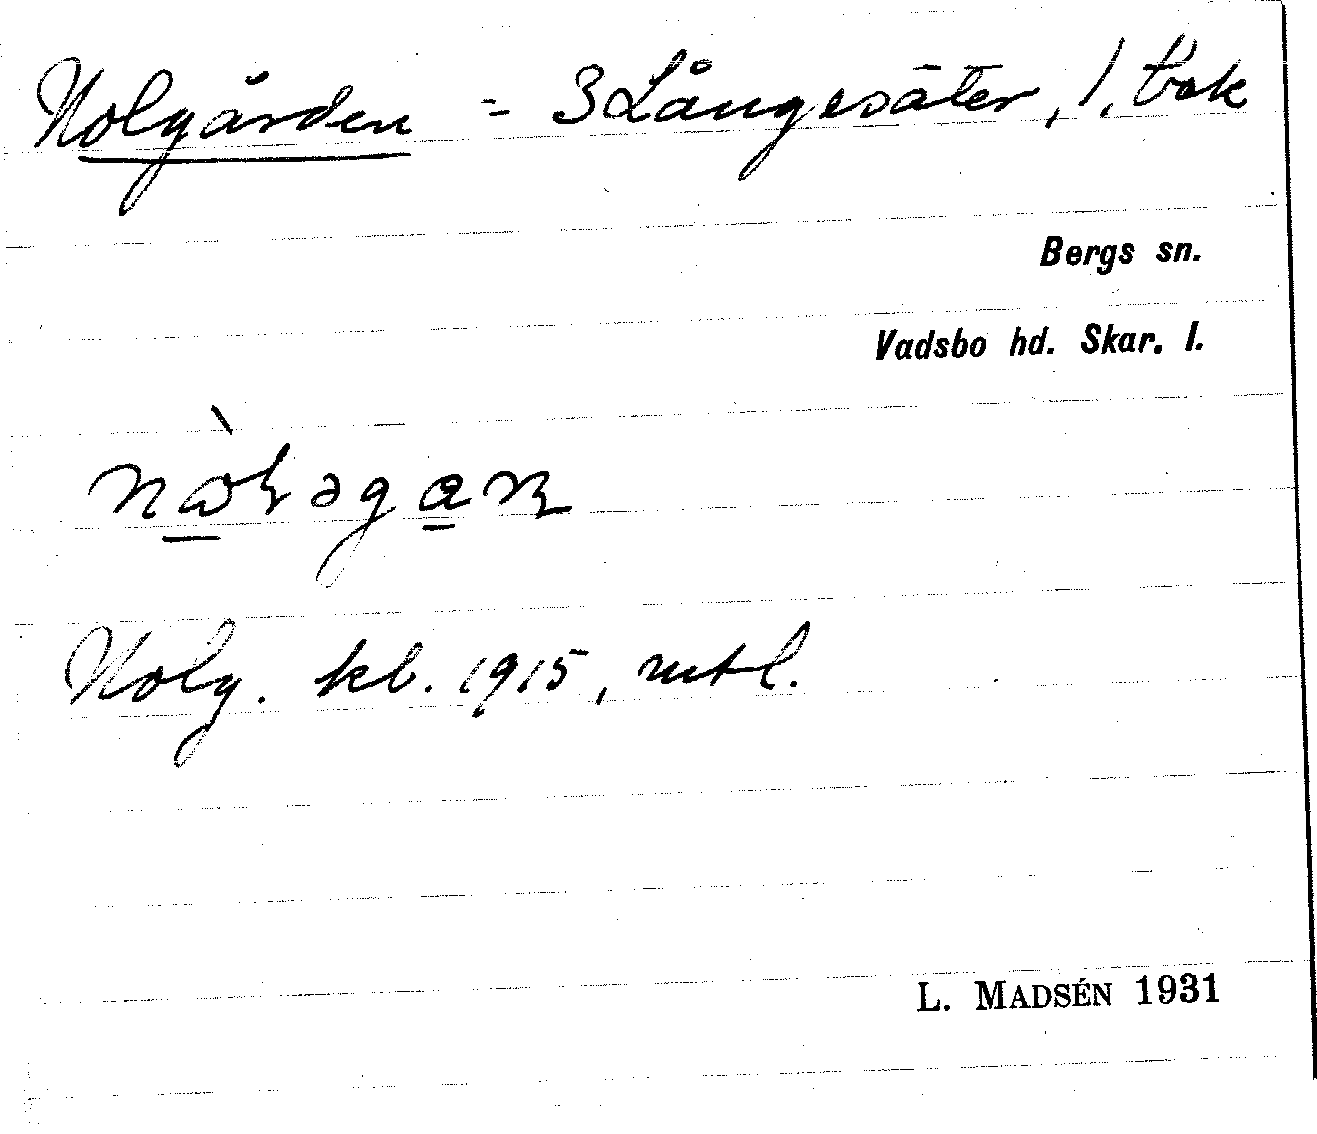 Nolgården = 3 Långesäter, 1, bok
Bergs sn.
Vadsbo hd. Skar. l.
Nolg. kb. 1915, mtl.
L. MADSÉN 1931